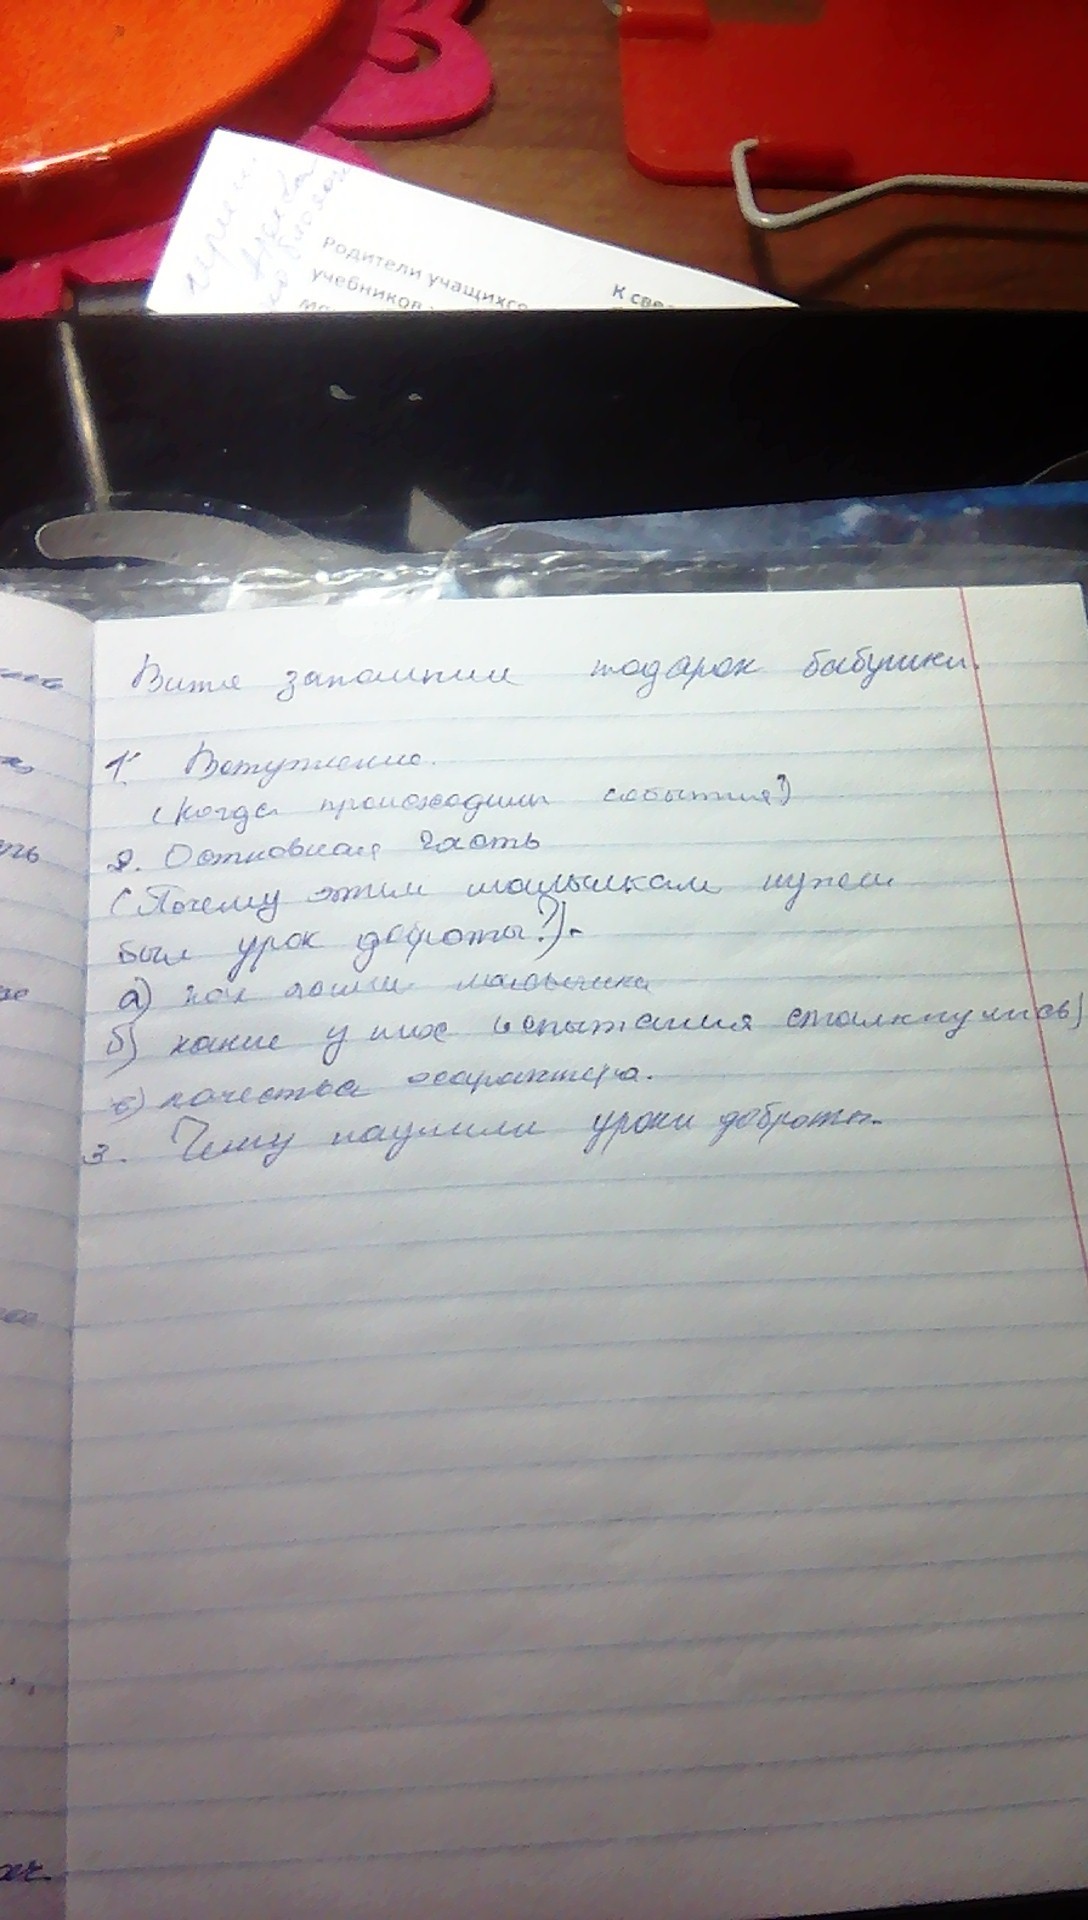 Родители учащихся
К све
учебников
Витя запомнил подарок бабушки.
1. Вступление.
(Когда происходили события?)
2. Остновная часть
(Почему этим мальчикам нужен
был урок доброты?).
а) как жили мальчики
б) какие у них испытания столкнулись)
в) качества характера.
3. Чему научили уроки доброты.